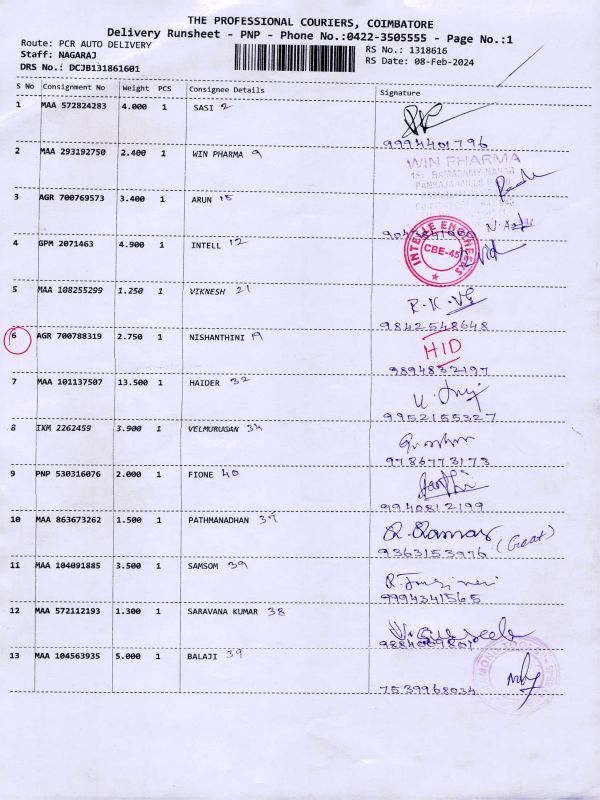 THE PROFESSIONAL COURIERS, COIMBATORE
Delivery Runsheet - PNP - Phone No.:0422-3505555 - Page No.:1
Route: PCR AUTO DELIVERY RS No.: 1318616
Staff: NAGARAJ RS Date: 08-Feb-2024
DRS No.: DCJB131861601
S No Consignment No Weight PCS Consignee Details Signature
1 MAA 572824283 4.000 1 SASI 2
9994401796
2 MAA 293192750 2.400 1 WIN PHARMA 9
WIN PHARMA
3 AGR 700769573 3.400 1 ARUN 15
4 GPM 2071463 4.900 1 INTELL 12
INTELLE ENGINEERS CBE-45
5 MAA 108255299 1.250 1 VIKNESH 21
9842548648
6 AGR 700788319 2.750 1 NISHANTHINI 19
HID
9894832197
7 MAA 101137507 13.500 1 HAIDER 32
9952155327
8 IKM 2262459 3.900 1 VELMURUGAN 34
9786773173
9 PNP 530316076 2.000 1 FIONE 40
9940812199
10 MAA 863673262 1.500 1 PATHMANADHAN 37
9363153976
11 MAA 104091885 3.500 1 SAMSOM 39
9994341565
12 MAA 572112193 1.300 1 SARAVANA KUMAR 38
9884069801
13 MAA 104563935 5.000 1 BALAJI 39
7539968034